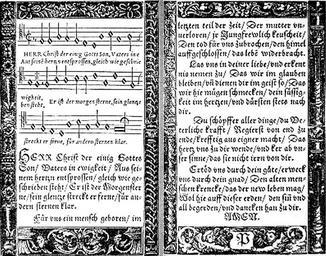 HERR Christ der einig Gottes Son, Vaters inn e
Aus seim hertzn entsprossen, gleich wie geschribn
wigkeit,
ben steht,
Er ist der morgen sterne, sein glantze
streckt er ferne, für andern sternen klar.
HERR Christ der einig Gottes
Son/ Vaters in ewigkeit/ Aus sei-
nem hertzn entsprossen/ gleich wie ge-
schrieben steht/ Er ist der Morgenster-
ne/ sein glentze streckt er ferne/ für an-
dern sternen klar.
Für uns ein mensch geboren/ im
letzten teil der zeit/ Der mutter un-
uerloren/ jr Jungfrewlich keuscheit/
Den tod für uns zubrochen/ den himel
auffgeschlossen/ das lebn widerbracht.
Las uns in deiner liebe/ und erkent
nis nemen zu/ Das wir im glauben
bleiben/ und dienen dir im geist so/ Das
wir hie mügen schmecken/ dein süssig-
keit im hertzen/ und dürsten stets nach
dir.
Du schöpffer aller dinge/ du Ve-
terliche krafft/ Regierst von end zu
ende/ krefftig aus eigner macht/ Das
hertz uns zu dir wende/ und ker ab un-
ser sinne/ das sie nicht irrn von dir.
Ertöd uns durch dein güte/ erweck
uns durch dein gnad/ Den alten men-
schen krencke/ das der new leben mag/
Wol hie auff dieser erden/ den sin und
all begerden/ und dancken han zu dir.
AMEN.